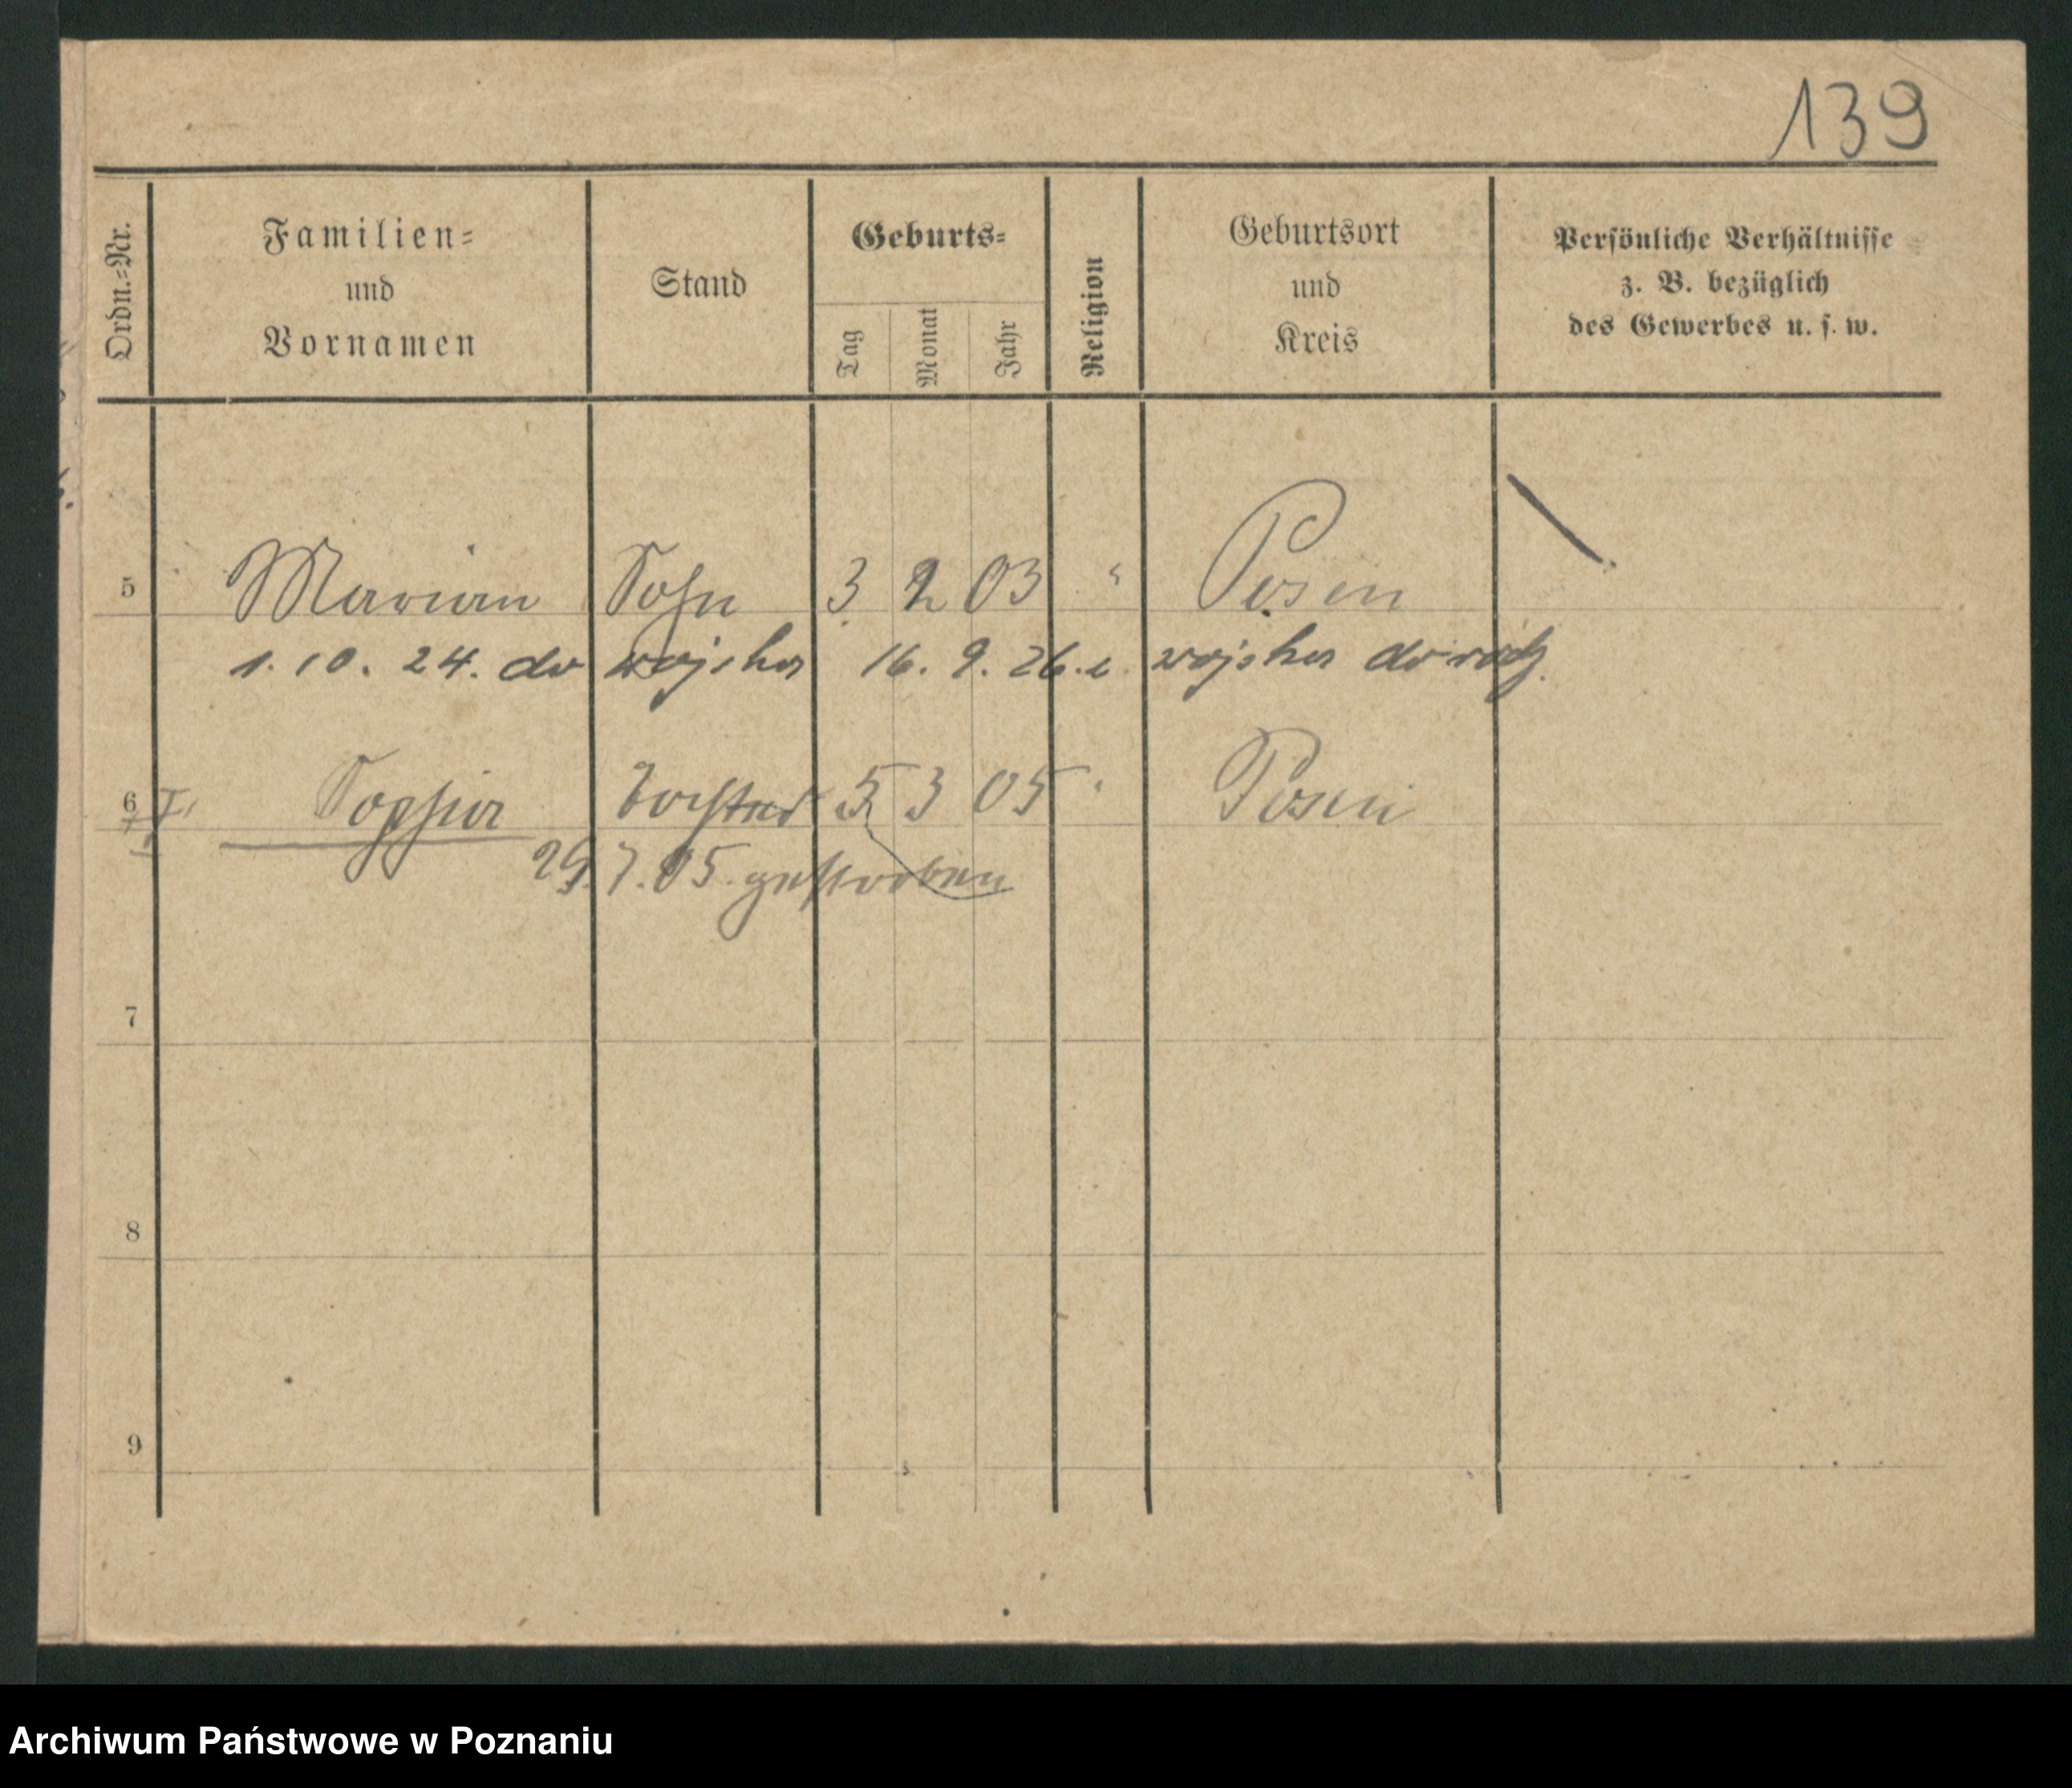 139
Ordn.=Nr.
Familien=
und
Vornamen
Stand
Geburts=
Tag
Monat
Jahr
Religion
Geburtsort
und
Kreis
Persönliche Verhältnisse
z. B. bezüglich
des Gewerbes u. s. w.
5 Marian Sohn 3 2 03 " Posen
1. 10. 24. do wojska 16. 9. 26. z wojska do
6 Sophia Tochter 5 3 05 " Posen
29. 7. 05. gestorben
7
8
9
Archiwum Państwowe w Poznaniu